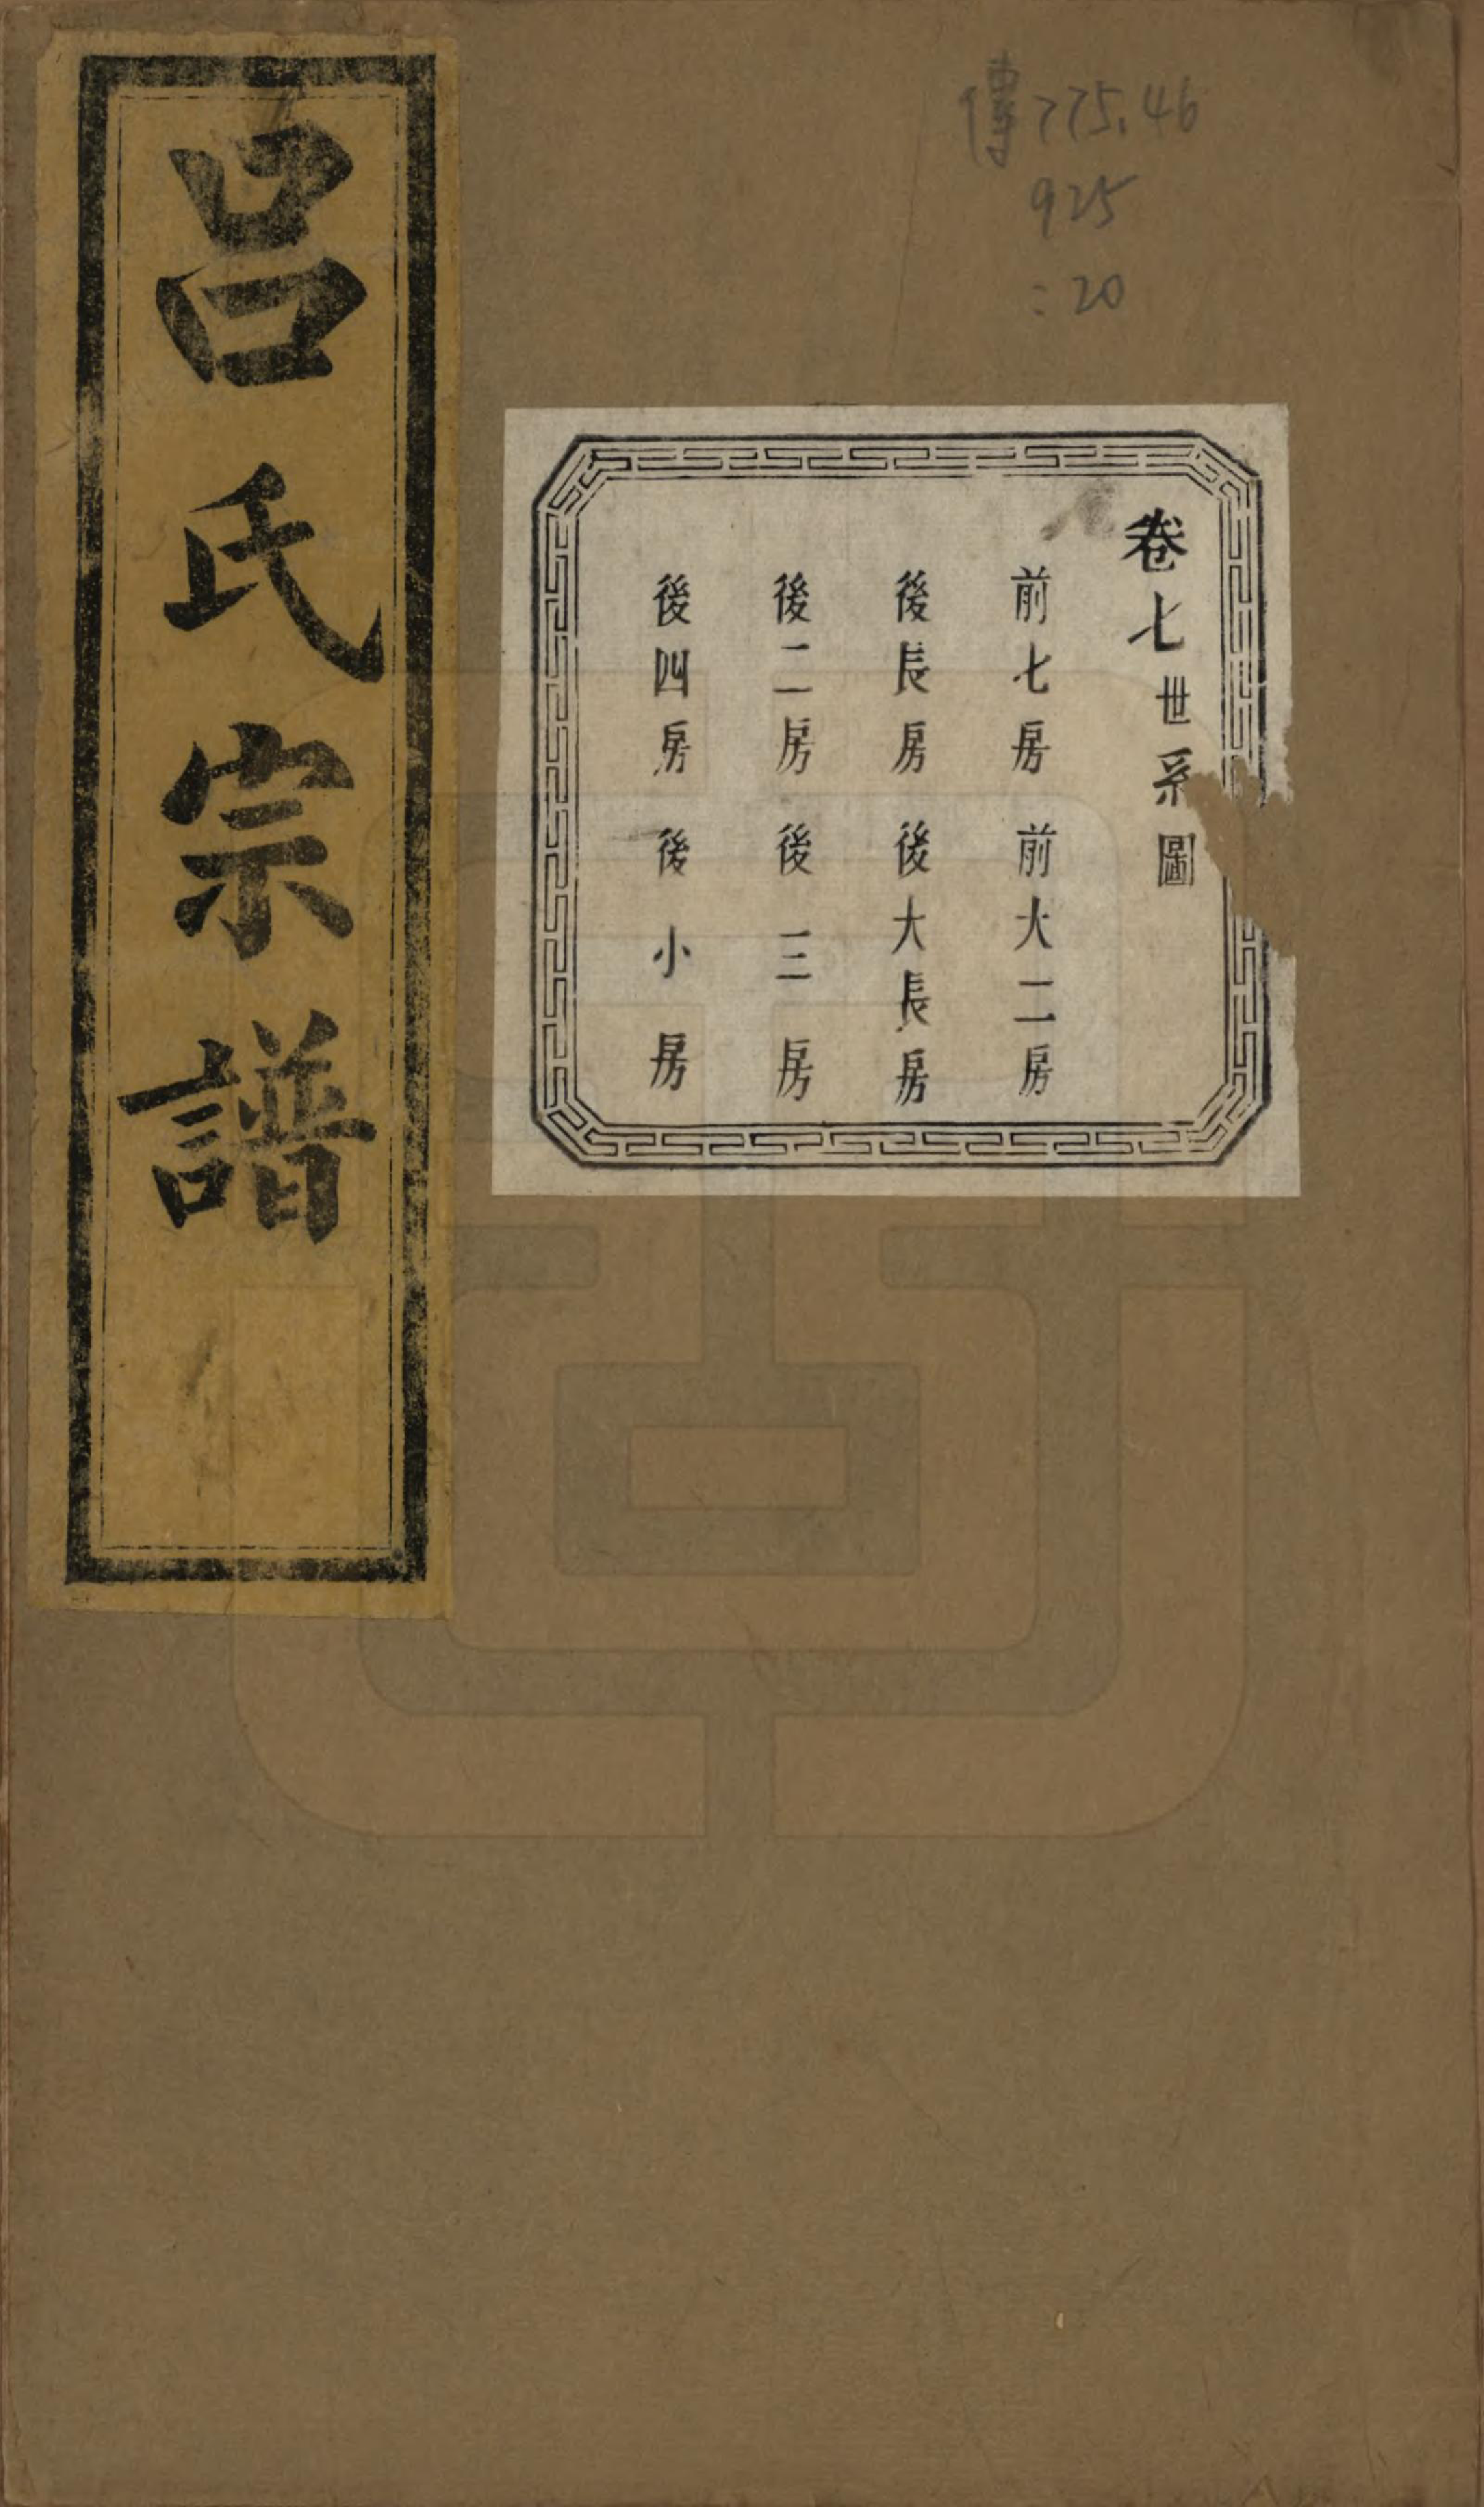 傳775.46
925
:20
卷七世系圖
前七房 前大二房
後長房 後大長房
後二房 後三房
後四房 後小房
呂氏宗譜